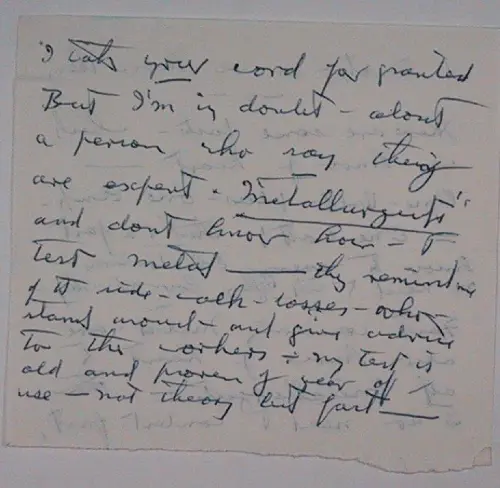 I take your word for granted
But I'm in doubt - about
a person who say they
are expert - "Metallurgists"
and dont know how - to
test metal — they remind me
of the side-walk-bosses-who-
stand around - and give advice
to the workers - my test is
old and proven by year of
use - not theory but fact —